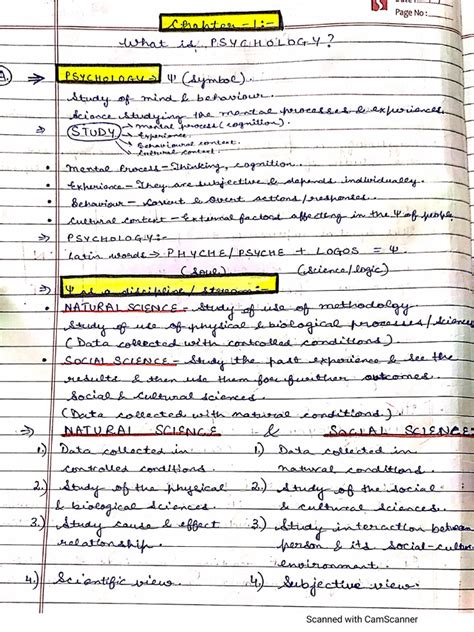 Page No:
Chapter - 1:-
What is PSYCHOLOGY?
A. ⇒ PSYCHOLOGY → Ψ (Symbol).
Study of mind & behaviour.
Science studying the mental processes & experiences.
⇒ STUDY → mental process (cognition).
→ Experience.
→ Behavioural context.
→ Cultural context.
• Mental Process - Thinking, cognition.
• Experience - They are subjective & depends individually.
• Behaviour - Covert & Overt actions/responses.
• Cultural context - External factors affecting in the Ψ of people.
⇒ PSYCHOLOGY:-
Latin words → PHYCHE/PSYCHE + LOGOS = Ψ
(Soul) (Science/logic)
⇒ Ψ is a discipline/stream:-
• NATURAL SCIENCE - Study of use of methodology
Study of use of physical & biological processes/sciences
(Data collected with controlled conditions).
• SOCIAL SCIENCE - Study the past experience & see the
results & then use them for further outcomes.
Social & Cultural sciences.
(Data collected with natural conditions).
⇒ NATURAL SCIENCE & SOCIAL SCIENCE:-
1.) Data collected in 1.) Data collected in
controlled conditions. natural conditions.
2.) Study of the physical 2.) Study of the social
& biological sciences. & cultural sciences.
3.) Study cause & effect 3.) Study interaction between
relationship. person & its social-cultural
environment.
4.) Scientific view. 4.) Subjective view.
Scanned with CamScanner